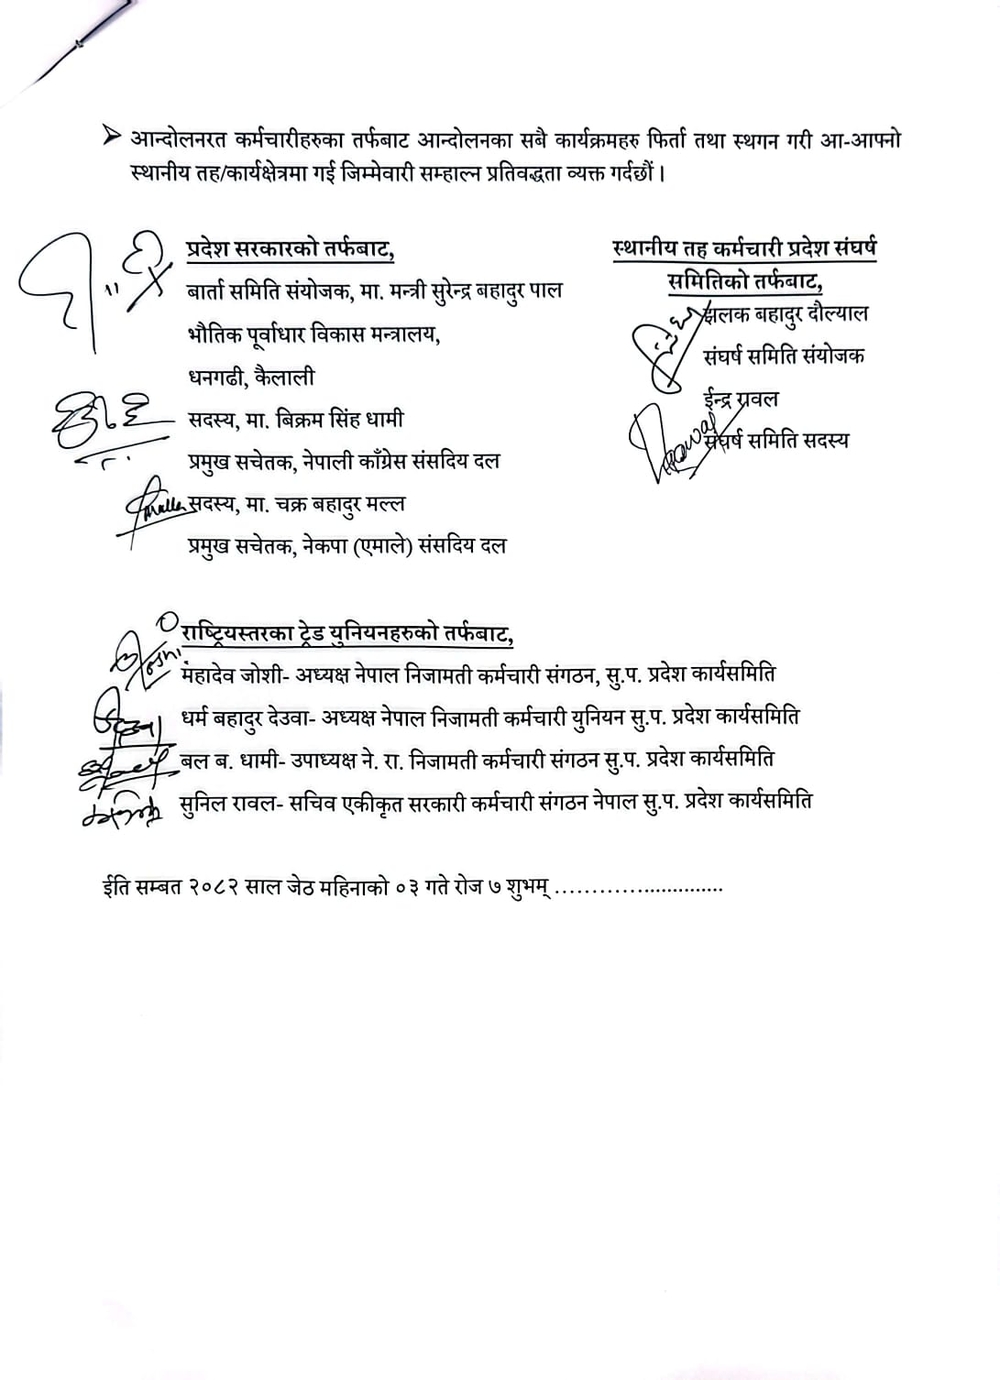 ➤ आन्दोलनरत कर्मचारीहरुका तर्फबाट आन्दोलनका सबै कार्यक्रमहरु फिर्ता तथा स्थगन गरी आ-आफ्नो
स्थानीय तह/कार्यक्षेत्रमा गई जिम्मेवारी सम्हाल्न प्रतिवद्धता व्यक्त गर्दछौं।
प्रदेश सरकारको तर्फबाट,
बार्ता समिति संयोजक, मा. मन्त्री सुरेन्द्र बहादुर पाल
भौतिक पूर्वाधार विकास मन्त्रालय,
धनगढी, कैलाली
सदस्य, मा. बिक्रम सिंह धामी
प्रमुख सचेतक, नेपाली काँग्रेस संसदिय दल
सदस्य, मा. चक्र बहादुर मल्ल
प्रमुख सचेतक, नेकपा (एमाले) संसदिय दल
स्थानीय तह कर्मचारी प्रदेश संघर्ष
समितिको तर्फबाट,
झलक बहादुर दौल्याल
संघर्ष समिति संयोजक
ईन्द्र रावल
संघर्ष समिति सदस्य
राष्ट्रियस्तरका ट्रेड युनियनहरुको तर्फबाट,
महादेव जोशी- अध्यक्ष नेपाल निजामती कर्मचारी संगठन, सु.प. प्रदेश कार्यसमिति
धर्म बहादुर देउवा- अध्यक्ष नेपाल निजामती कर्मचारी युनियन सु.प. प्रदेश कार्यसमिति
बल ब. धामी- उपाध्यक्ष ने. रा. निजामती कर्मचारी संगठन सु.प. प्रदेश कार्यसमिति
सुनिल रावल- सचिव एकीकृत सरकारी कर्मचारी संगठन नेपाल सु.प. प्रदेश कार्यसमिति
ईति सम्बत २०८२ साल जेठ महिनाको ०३ गते रोज ७ शुभम् ………….................